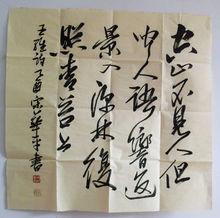 空山不見人但
聞人語響返
景入深林復
照青苔上
王維詩乙酉